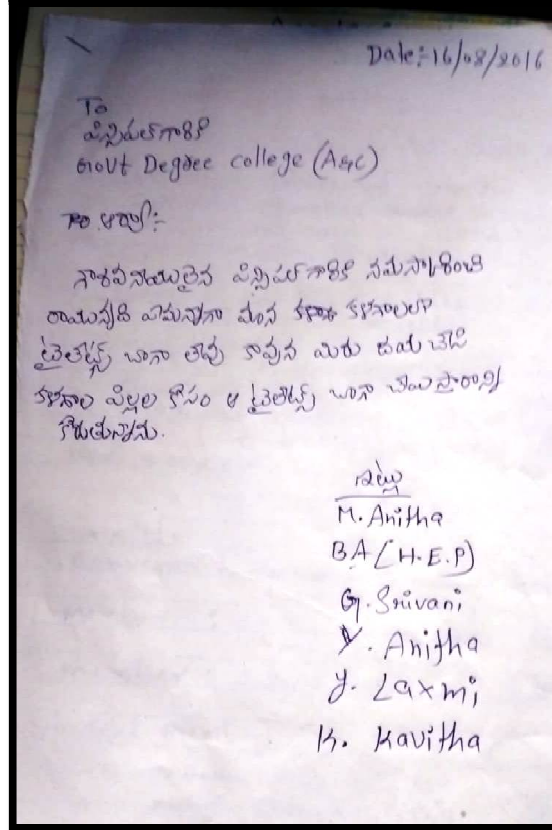 Date:-16/08/2016
To
ప్రిన్సిపల్ గారికి
Govt Degree college (A&C)
ఆర్యా:-
గౌరవనీయులైన ప్రిన్సిపల్ గారికి నమస్కరించి
రాయునది ఏమనగా మన కళాశాలలో
టైలెట్స్ బాగా లేవు కావున మీరు దయ చేసి
కళాశాల పిల్లల కోసం ఆ టైలెట్స్ బాగా చేయిస్తారాన్ని
కోరుతున్నాము.
ఇట్లు
M. Anitha
BA (H.E.P)
G. Srivani
Y. Anitha
y. Laxmi
K. Kavitha